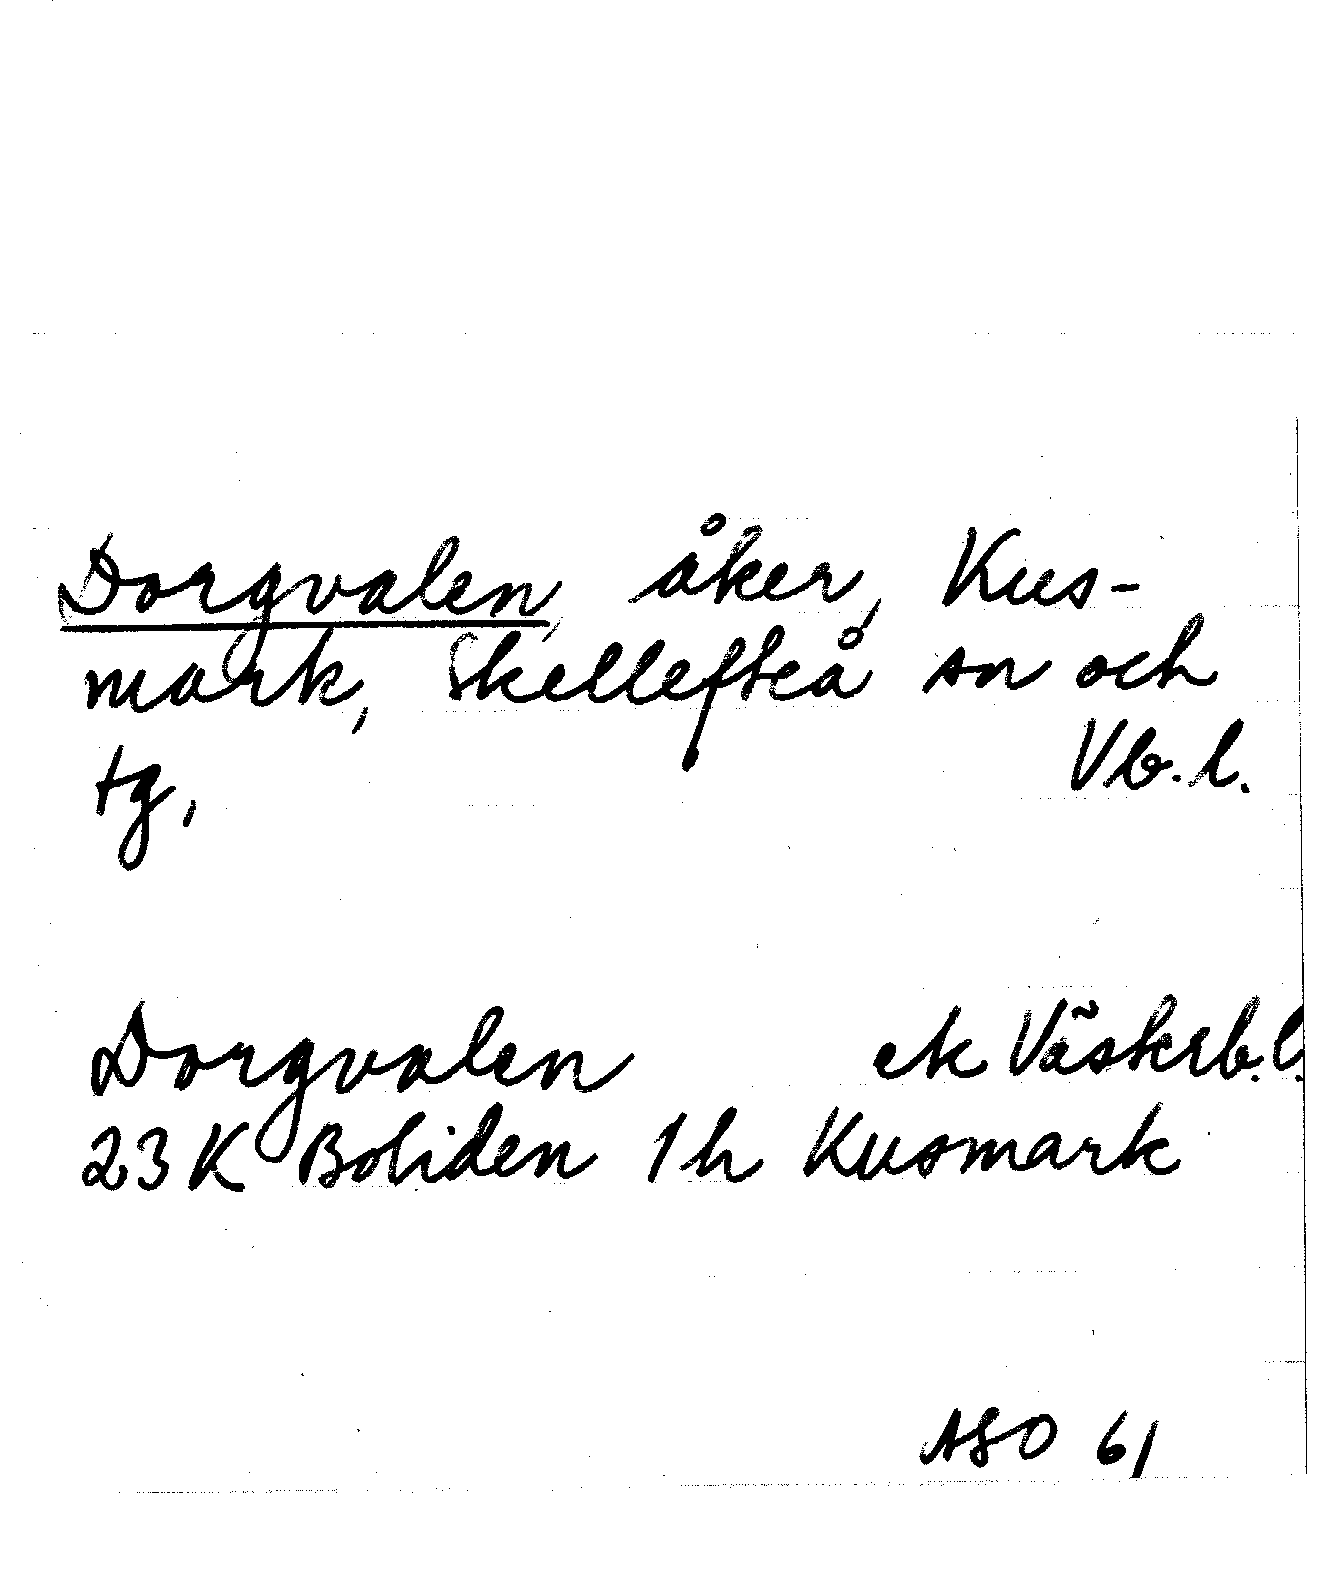 Dorgvalen, åker, Kus-
mark, Skellefteå sn och
tg, Vb. l.
Dorgvalen ek Västerb. l.
23 K Boliden 1 h Kusmark
ASO 61